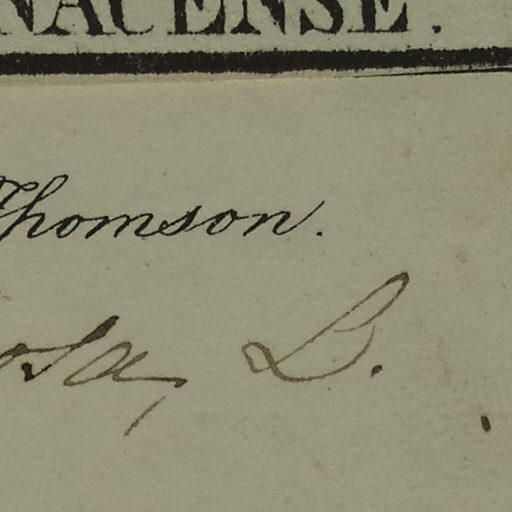 NACENSE.
Thomson.
osa, L.